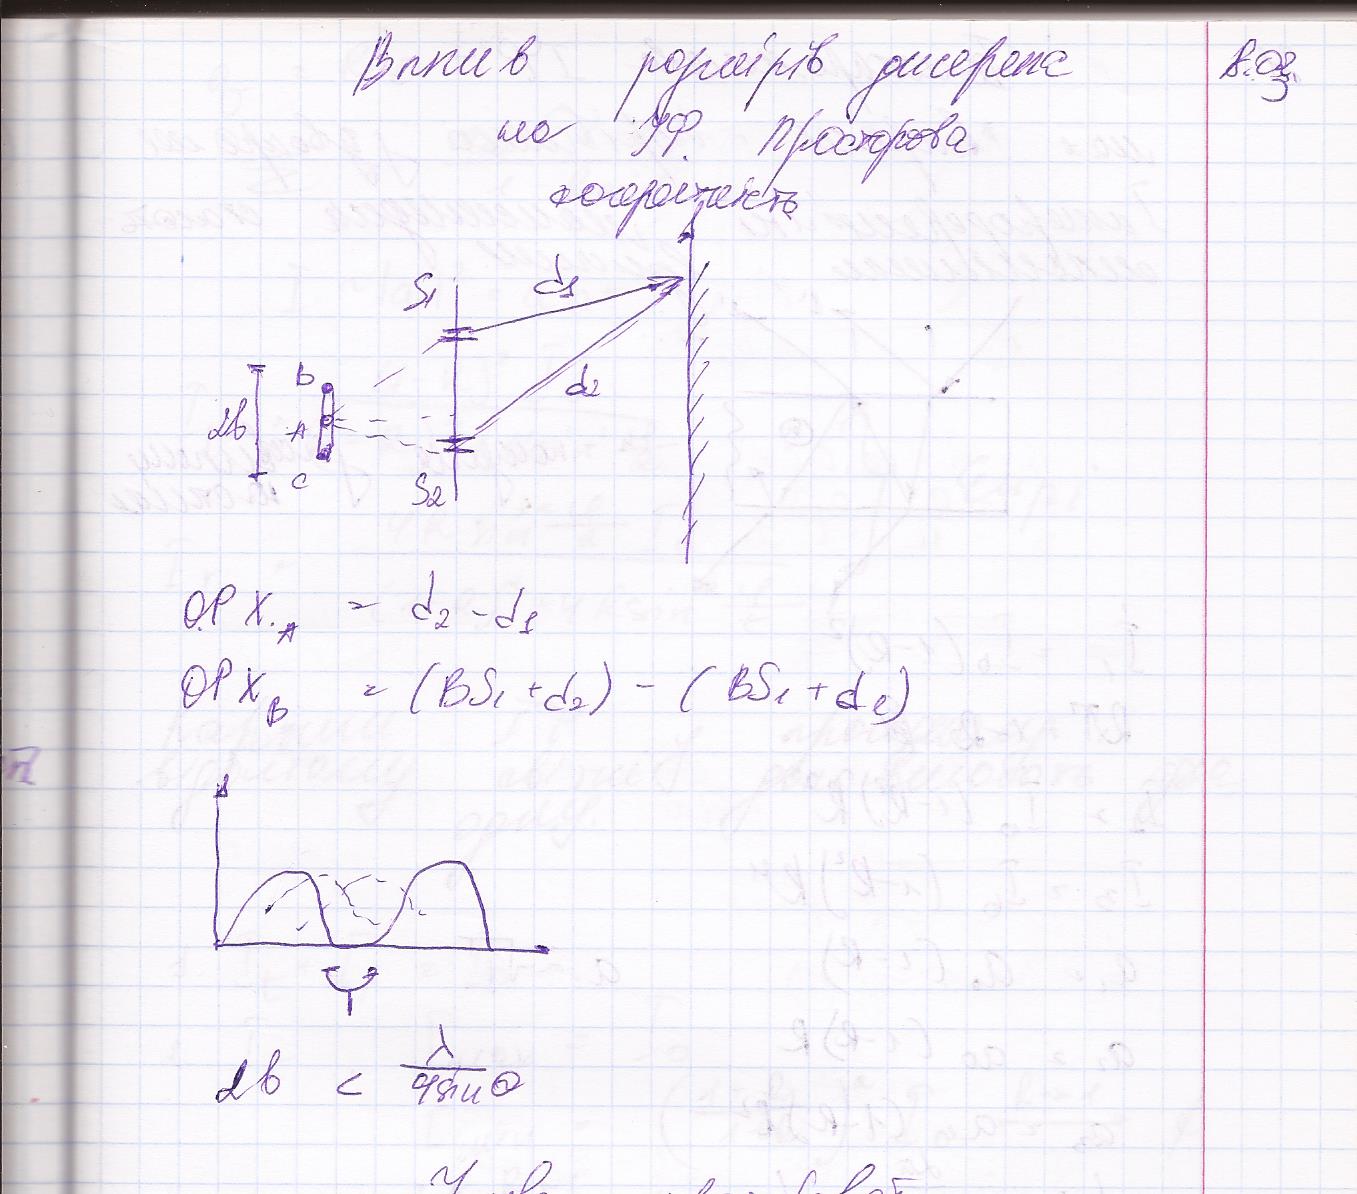 Вплив розмірів джерела 8.03
на ІФ. Просторова
когерентність
S1 d1
B d2
2b A
C S2
О.Р.Х.A = d2 - d1
ОРХB = (BS1 + d2) - (BS1 + d1)
2b < λ/4sinΘ